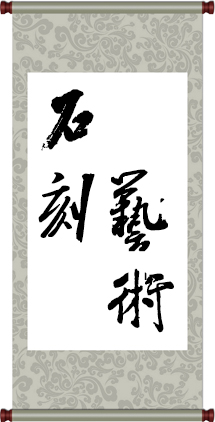 石刻
藝術